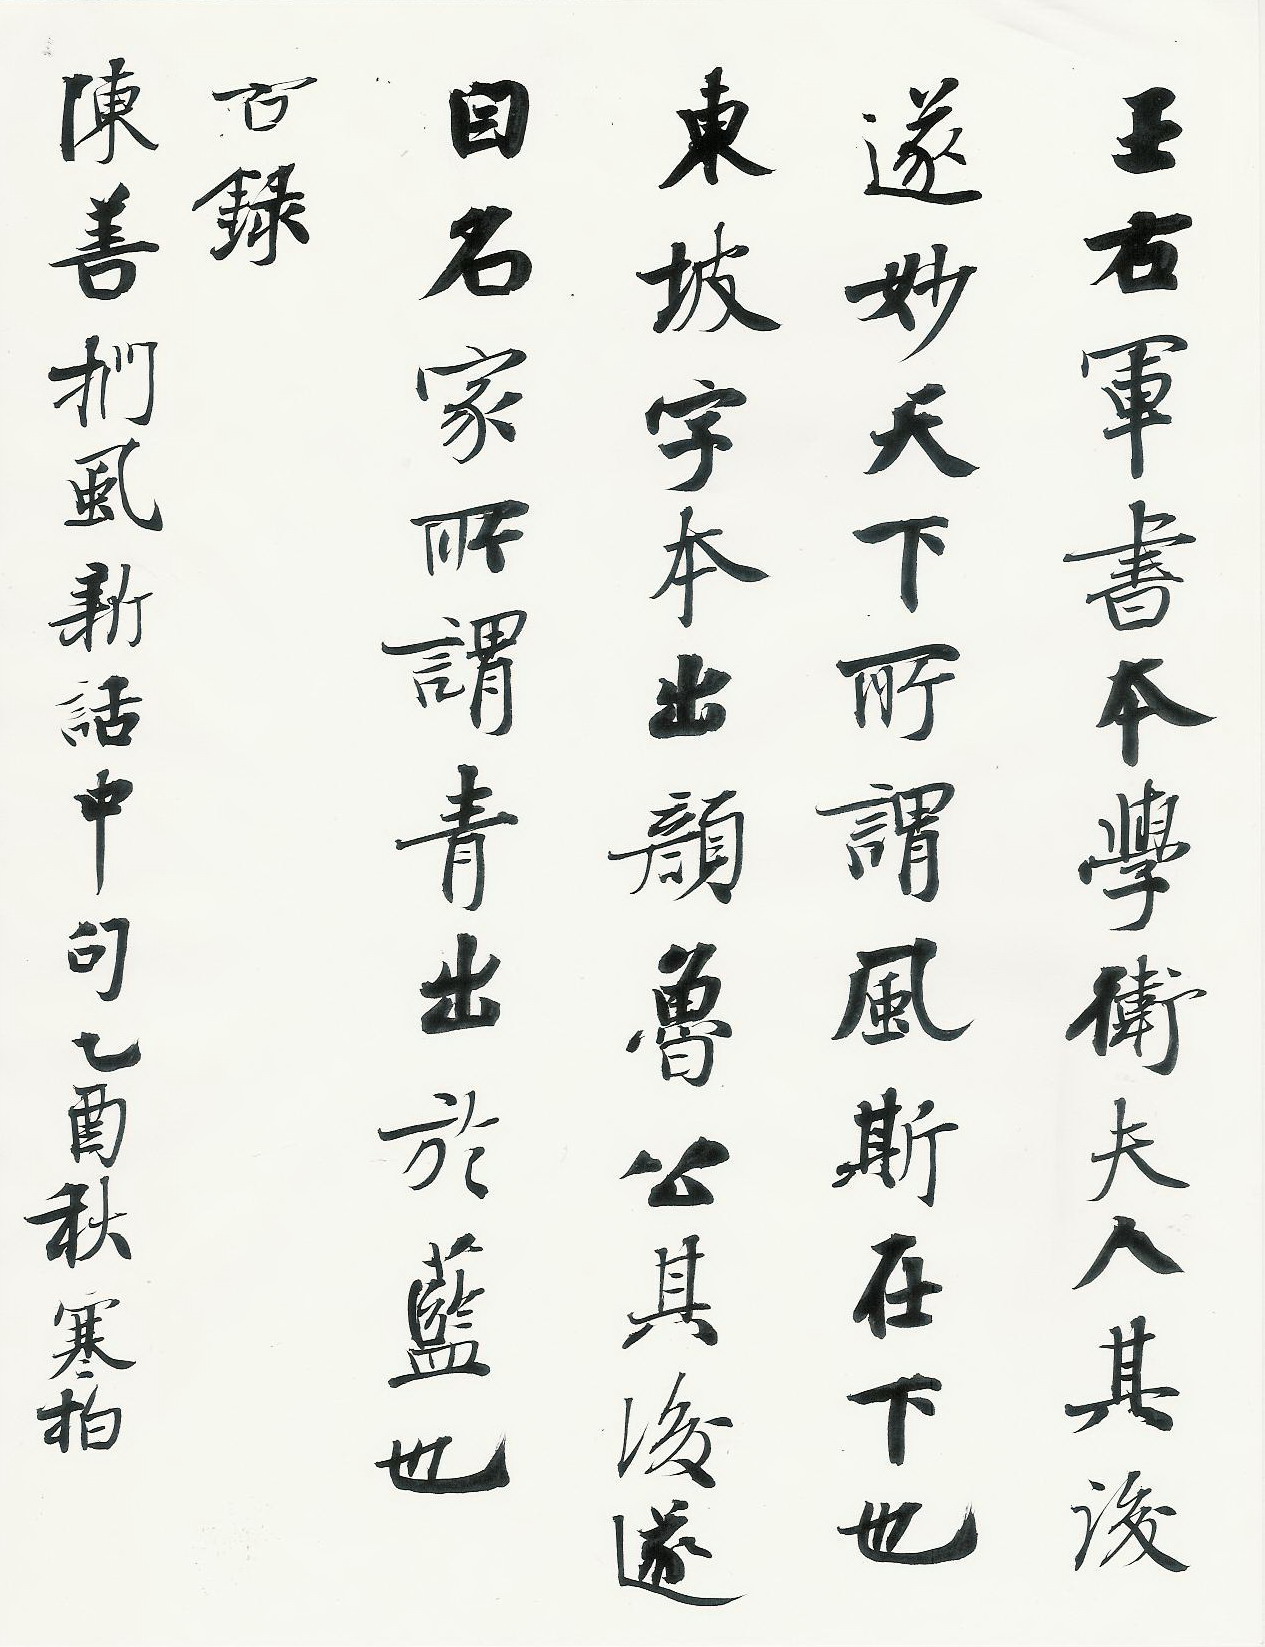 王右軍書本學衛夫人其後
遂妙天下所謂風斯在下也
東坡字本出顏魯公其後遂
自名家所謂青出於藍也
右錄
陳善捫虱新話中句乙酉秋寒柏